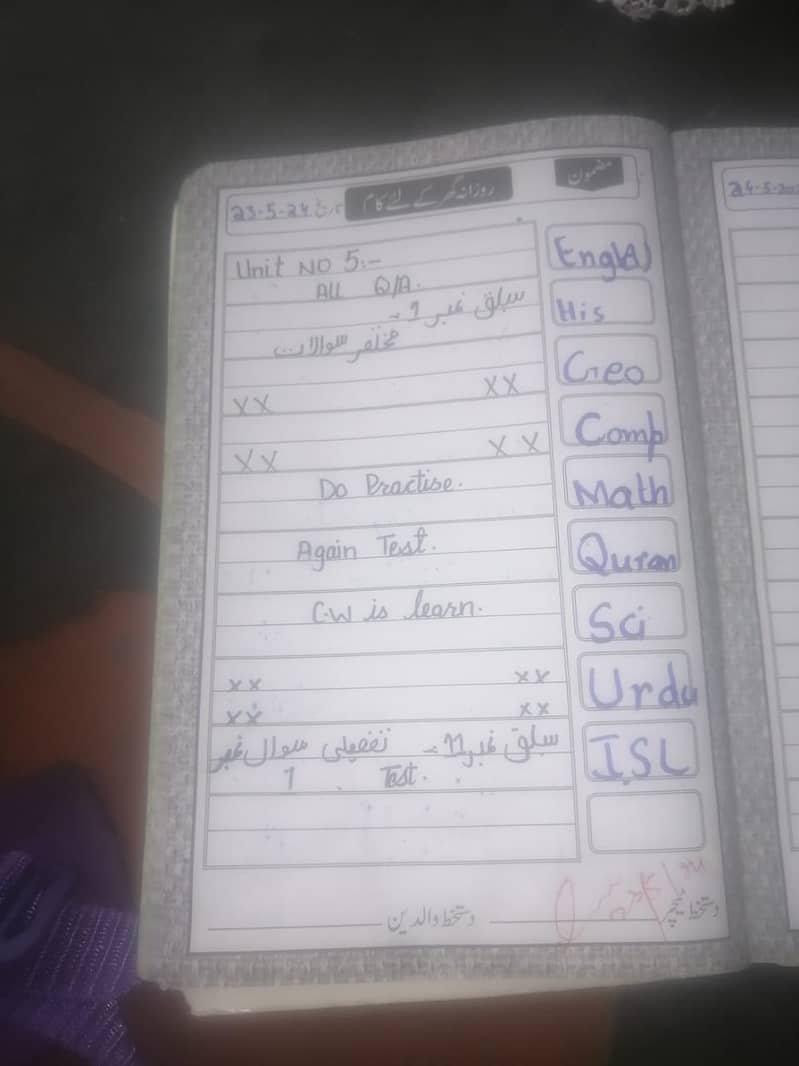 مضمون
روزانہ گھر کے لئے کام
تاریخ 23-5-24
24-5-20
Eng(A)
Unit NO 5:-
All Q/A.
His
سبق نمبر 9-
مختصر سوالات
Geo
XX XX
Comp
XX XX
Math
Do Practise.
Quran
Again Test.
Sci
C.W is learn.
Urdu
XX XX
XX XX
ISL
سبق نمبر 11- تفصیلی سوال نمبر
1 Test.
دستخط ٹیچر
دستخط والدین